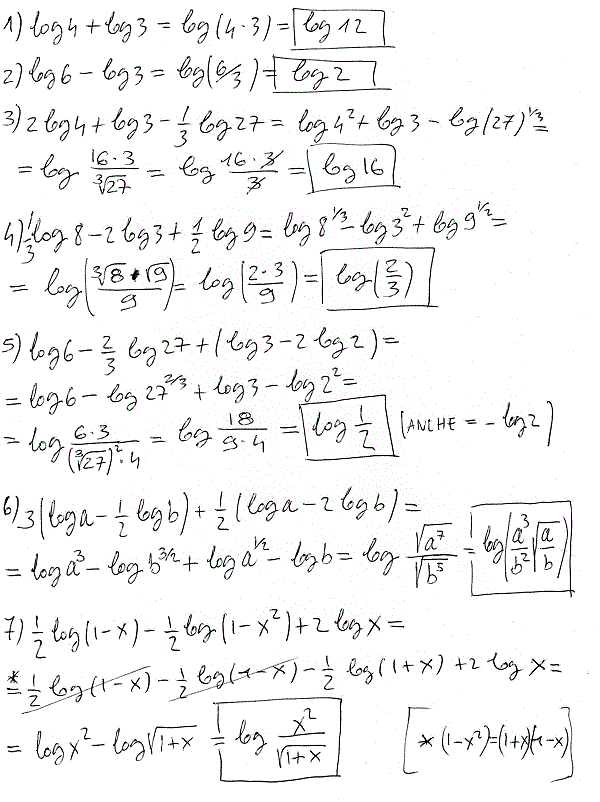 1) log 4 + log 3 = log (4 · 3) = log 12
2) log 6 − log 3 = log (6/3) = log 2
3) 2 log 4 + log 3 − 1/3 log 27 = log 4² + log 3 − log (27)^1/3 =
= log (16 · 3)/∛27 = log (16 · 3)/3 = log 16
4) 1/3 log 8 − 2 log 3 + 1/2 log 9 = log 8^1/3 − log 3² + log 9^1/2 =
= log (∛8 · √9 / 9) = log (2 · 3 / 9) = log (2/3)
5) log 6 − 2/3 log 27 + (log 3 − 2 log 2) =
= log 6 − log 27^2/3 + log 3 − log 2² =
= log (6 · 3)/((∛27)² · 4) = log 18/(9 · 4) = log 1/2 (ANCHE = − log 2)
6) 3 (log a − 1/2 log b) + 1/2 (log a − 2 log b) =
= log a³ − log b^3/2 + log a^1/2 − log b = log √a⁷/√b⁵ = log (a³/b² √(a/b))
7) 1/2 log (1 − x) − 1/2 log (1 − x²) + 2 log x =
*= 1/2 log (1 − x) − 1/2 log (1 − x) − 1/2 log (1 + x) + 2 log x =
= log x² − log √(1 + x) = log x²/√(1 + x) [* (1 − x²) = (1 + x)(1 − x)]